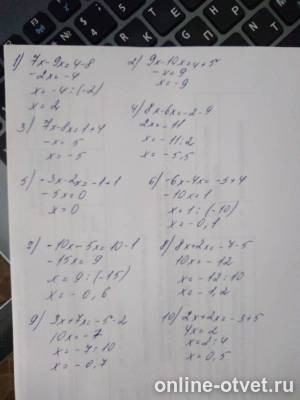 1) 7x-9x=4-8
-2x=-4
x=-4:(-2)
x=2
2) 9x-10x=4+5
-x=9
x=-9
3) 7x-8x=1+4
-x=5
x=-5
4) 8x-6x=-2-9
2x=-11
x=-11:2
x=-5,5
5) -3x-2x=-1+1
-5x=0
x=0
6) -6x-4x=-3+4
-10x=1
x=1:(-10)
x=-0,1
7) -10x-5x=10-1
-15x=9
x=9:(-15)
x=-0,6
8) 8x+2x=-7-5
10x=-12
x=-12:10
x=-1,2
9) 3x+7x=-5-2
10x=-7
x=-7:10
x=-0,7
10) 2x+2x=-3+5
4x=2
x=2:4
x=0,5
online-otvet.ru